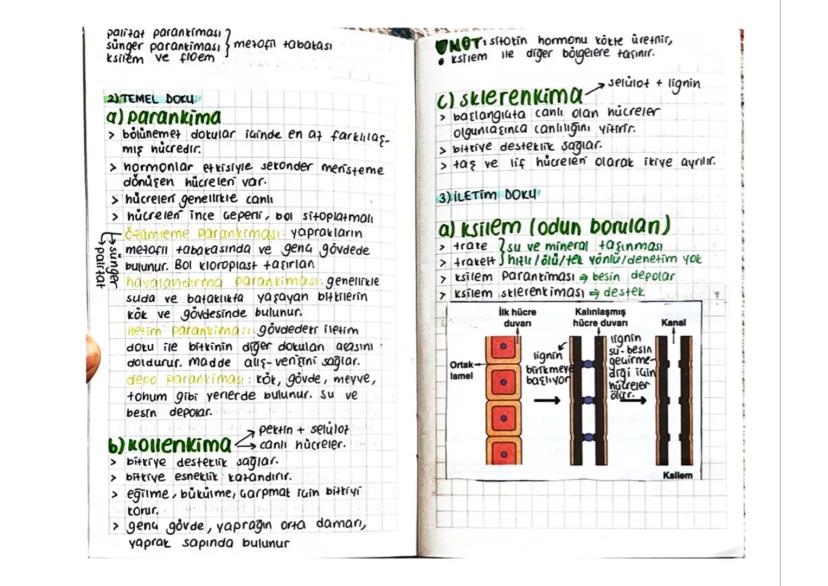 palizat parankiması
sünger parankiması } mezofil tabakası
ksilem ve floem
2) TEMEL DOKU
a) parankima
> bölünemez dokular içinde en az farklılaş-
mış hücredir.
> hormonlar etkisiyle sekonder meristeme
dönüşen hücreleri var.
> hücreleri genellikle canlı
> hücreleri ince çeperli, bol sitoplazmalı
özümleme parankiması: yaprakların
mezofil tabakasında ve genç gövdede
bulunur. Bol kloroplast taşırlar
sünger
palizat
havalandırma parankiması: genellikle
suda ve bataklıkta yaşayan bitkilerin
kök ve gövdesinde bulunur.
iletim parankiması: gövdedeki iletim
doku ile bitkinin diğer dokuları arasını
doldurur. madde alış-verişini sağlar.
depo parankiması: kök, gövde, meyve,
tohum gibi yerlerde bulunur. su ve
besin depolar.
b) kollenkima → pektin + selüloz
→ canlı hücreler.
> bitkiye desteklik sağlar.
> bitkiye esneklik kazandırır.
> eğilme, bükülme, çarpmak için bitkiyi
korur.
> genç gövde, yaprağın orta damarı,
yaprak sapında bulunur
NOT: sitokin hormonu kökte üretilir,
ksilem ile diğer bölgelere taşınır.
c) sklerenkima → selüloz + lignin
> başlangıçta canlı olan hücreler
olgunlaşınca canlılığını yitirir.
> bitkiye desteklik sağlar.
> taş ve lif hücreleri olarak ikiye ayrılır.
3) İLETİM DOKU
a) ksilem (odun boruları)
> trake } su ve mineral taşınması
> trakeit } hızlı/ölü/tek yönlü/denetim yok
> ksilem parankiması ⇒ besin depolar
> ksilem sklerenkiması ⇒ destek
İlk hücre
duvarı
Kalınlaşmış
hücre duvarı
Kanal
Ortak
lamel
lignin
birikmeye
başlıyor
lignin
su-besin
geçirme-
diği için
hücreler
ölür.
Ksilem